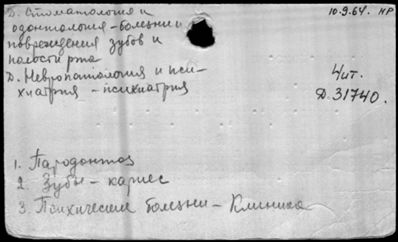 Д. Стоматология и
одонтология - болезни и
повреждения зубов и
полости рта
Д. Невропатология и пси-
хиатрия - психиатрия
10.9.64. НР
4 чит.
Д. 31740.
1. Пародонтоз
2. Зубы - кариес
3. Психические болезни - Клиника